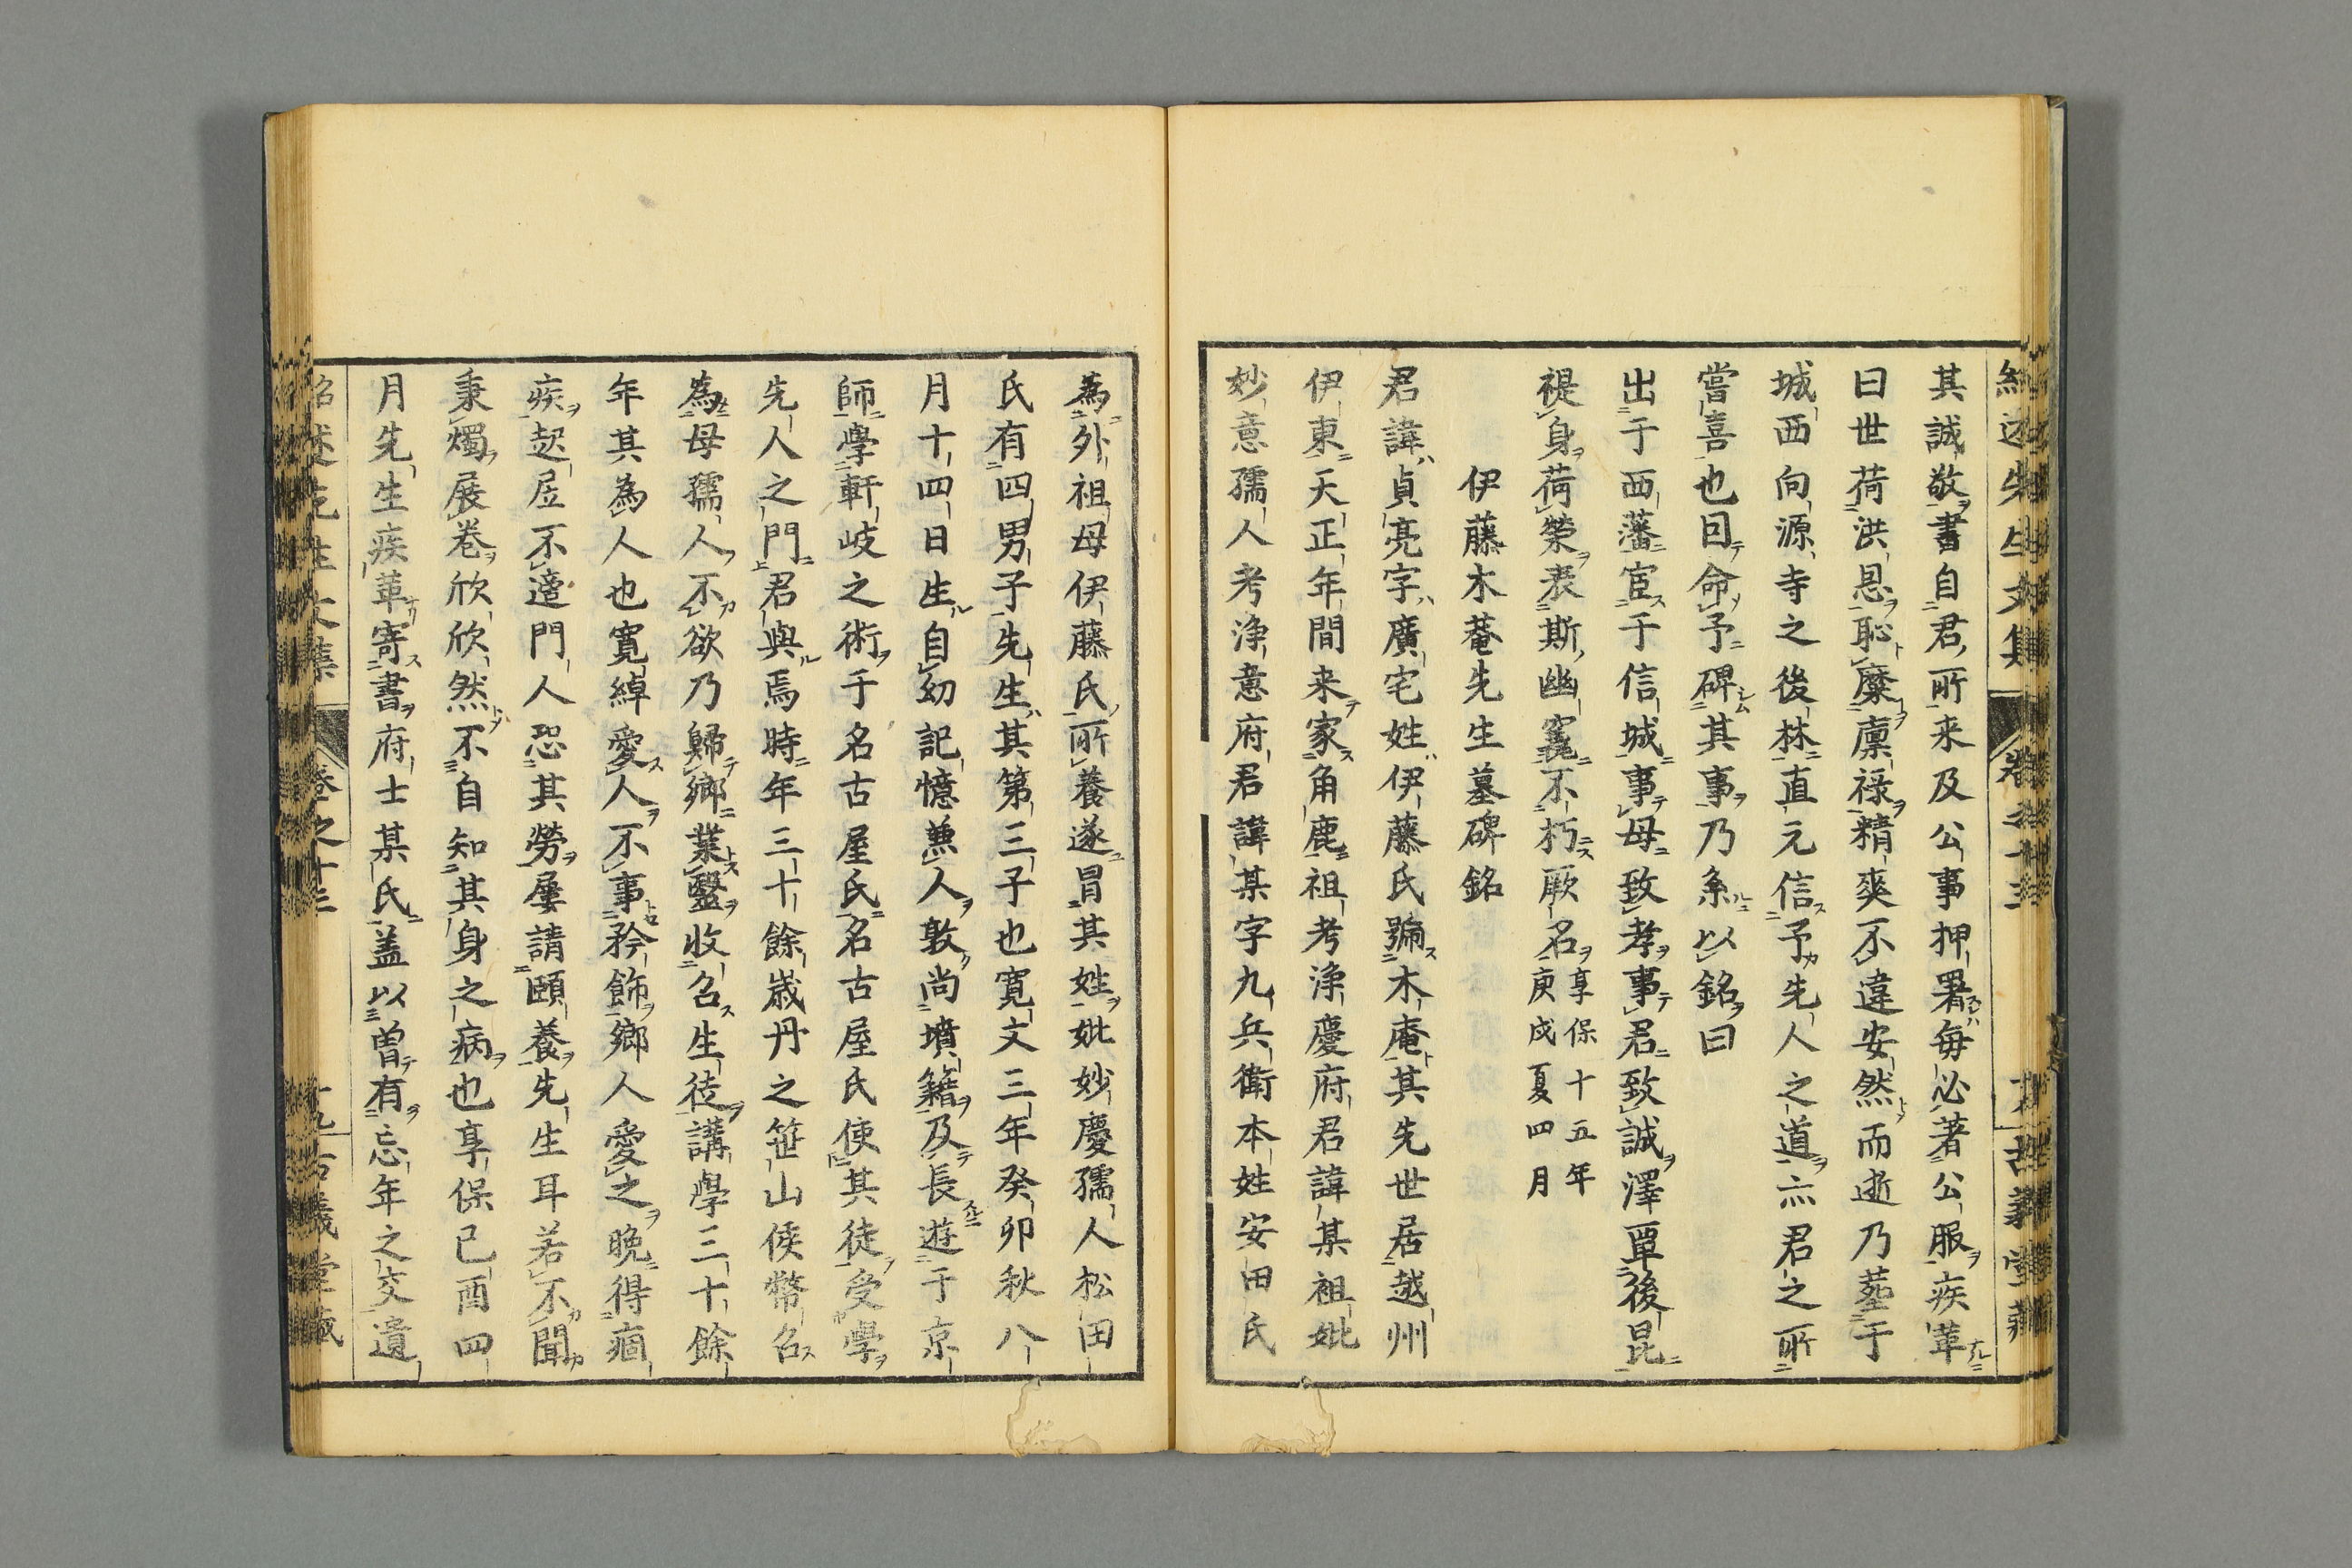 其誠敬書自君所来及公事押署毎必著公服疾革
曰世荷洪恩恥糜廩禄精爽不違安然而逝乃葬于
城西向源寺之後林直元信予先人之道亦君之所
嘗喜也因命予碑其事乃系以銘曰
出于西藩宦于信城事母致孝事君致誠澤覃後昆
禔身荷榮表斯幽窀不朽厥名享保十五年庚戌夏四月
伊藤木菴先生墓碑銘
君諱貞亮字廣宅姓伊藤氏號木庵其先世居越州
伊東天正年間来家角鹿祖考浄慶府君諱某祖妣
妙意孺人考浄意府君諱某字九兵衛本姓安田氏
為外祖母伊藤氏所養遂冒其姓妣妙慶孺人松田
氏有四男子先生其第三子也寛文三年癸卯秋八
月十四日生自幼記憶兼人敦尚墳籍及長遊于京
師學軒岐之術于名古屋氏名古屋氏使其徒受學
先人之門君與焉時年三十餘歳丹之笹山侯幣召
為母孺人不欲乃歸鄉業醫收召生徒講學三十餘
年其為人也寛綽愛人不事矜飾鄉人愛之晩得痼
疾起居不適門人恐其勞屢請頤養先生耳若不聞
秉燭展巻欣欣然不自知其身之病也享保己酉四
月先生疾革寄書府士某氏蓋以曽有忘年之交遺
紹述先生文集
卷之十三
古義堂藏